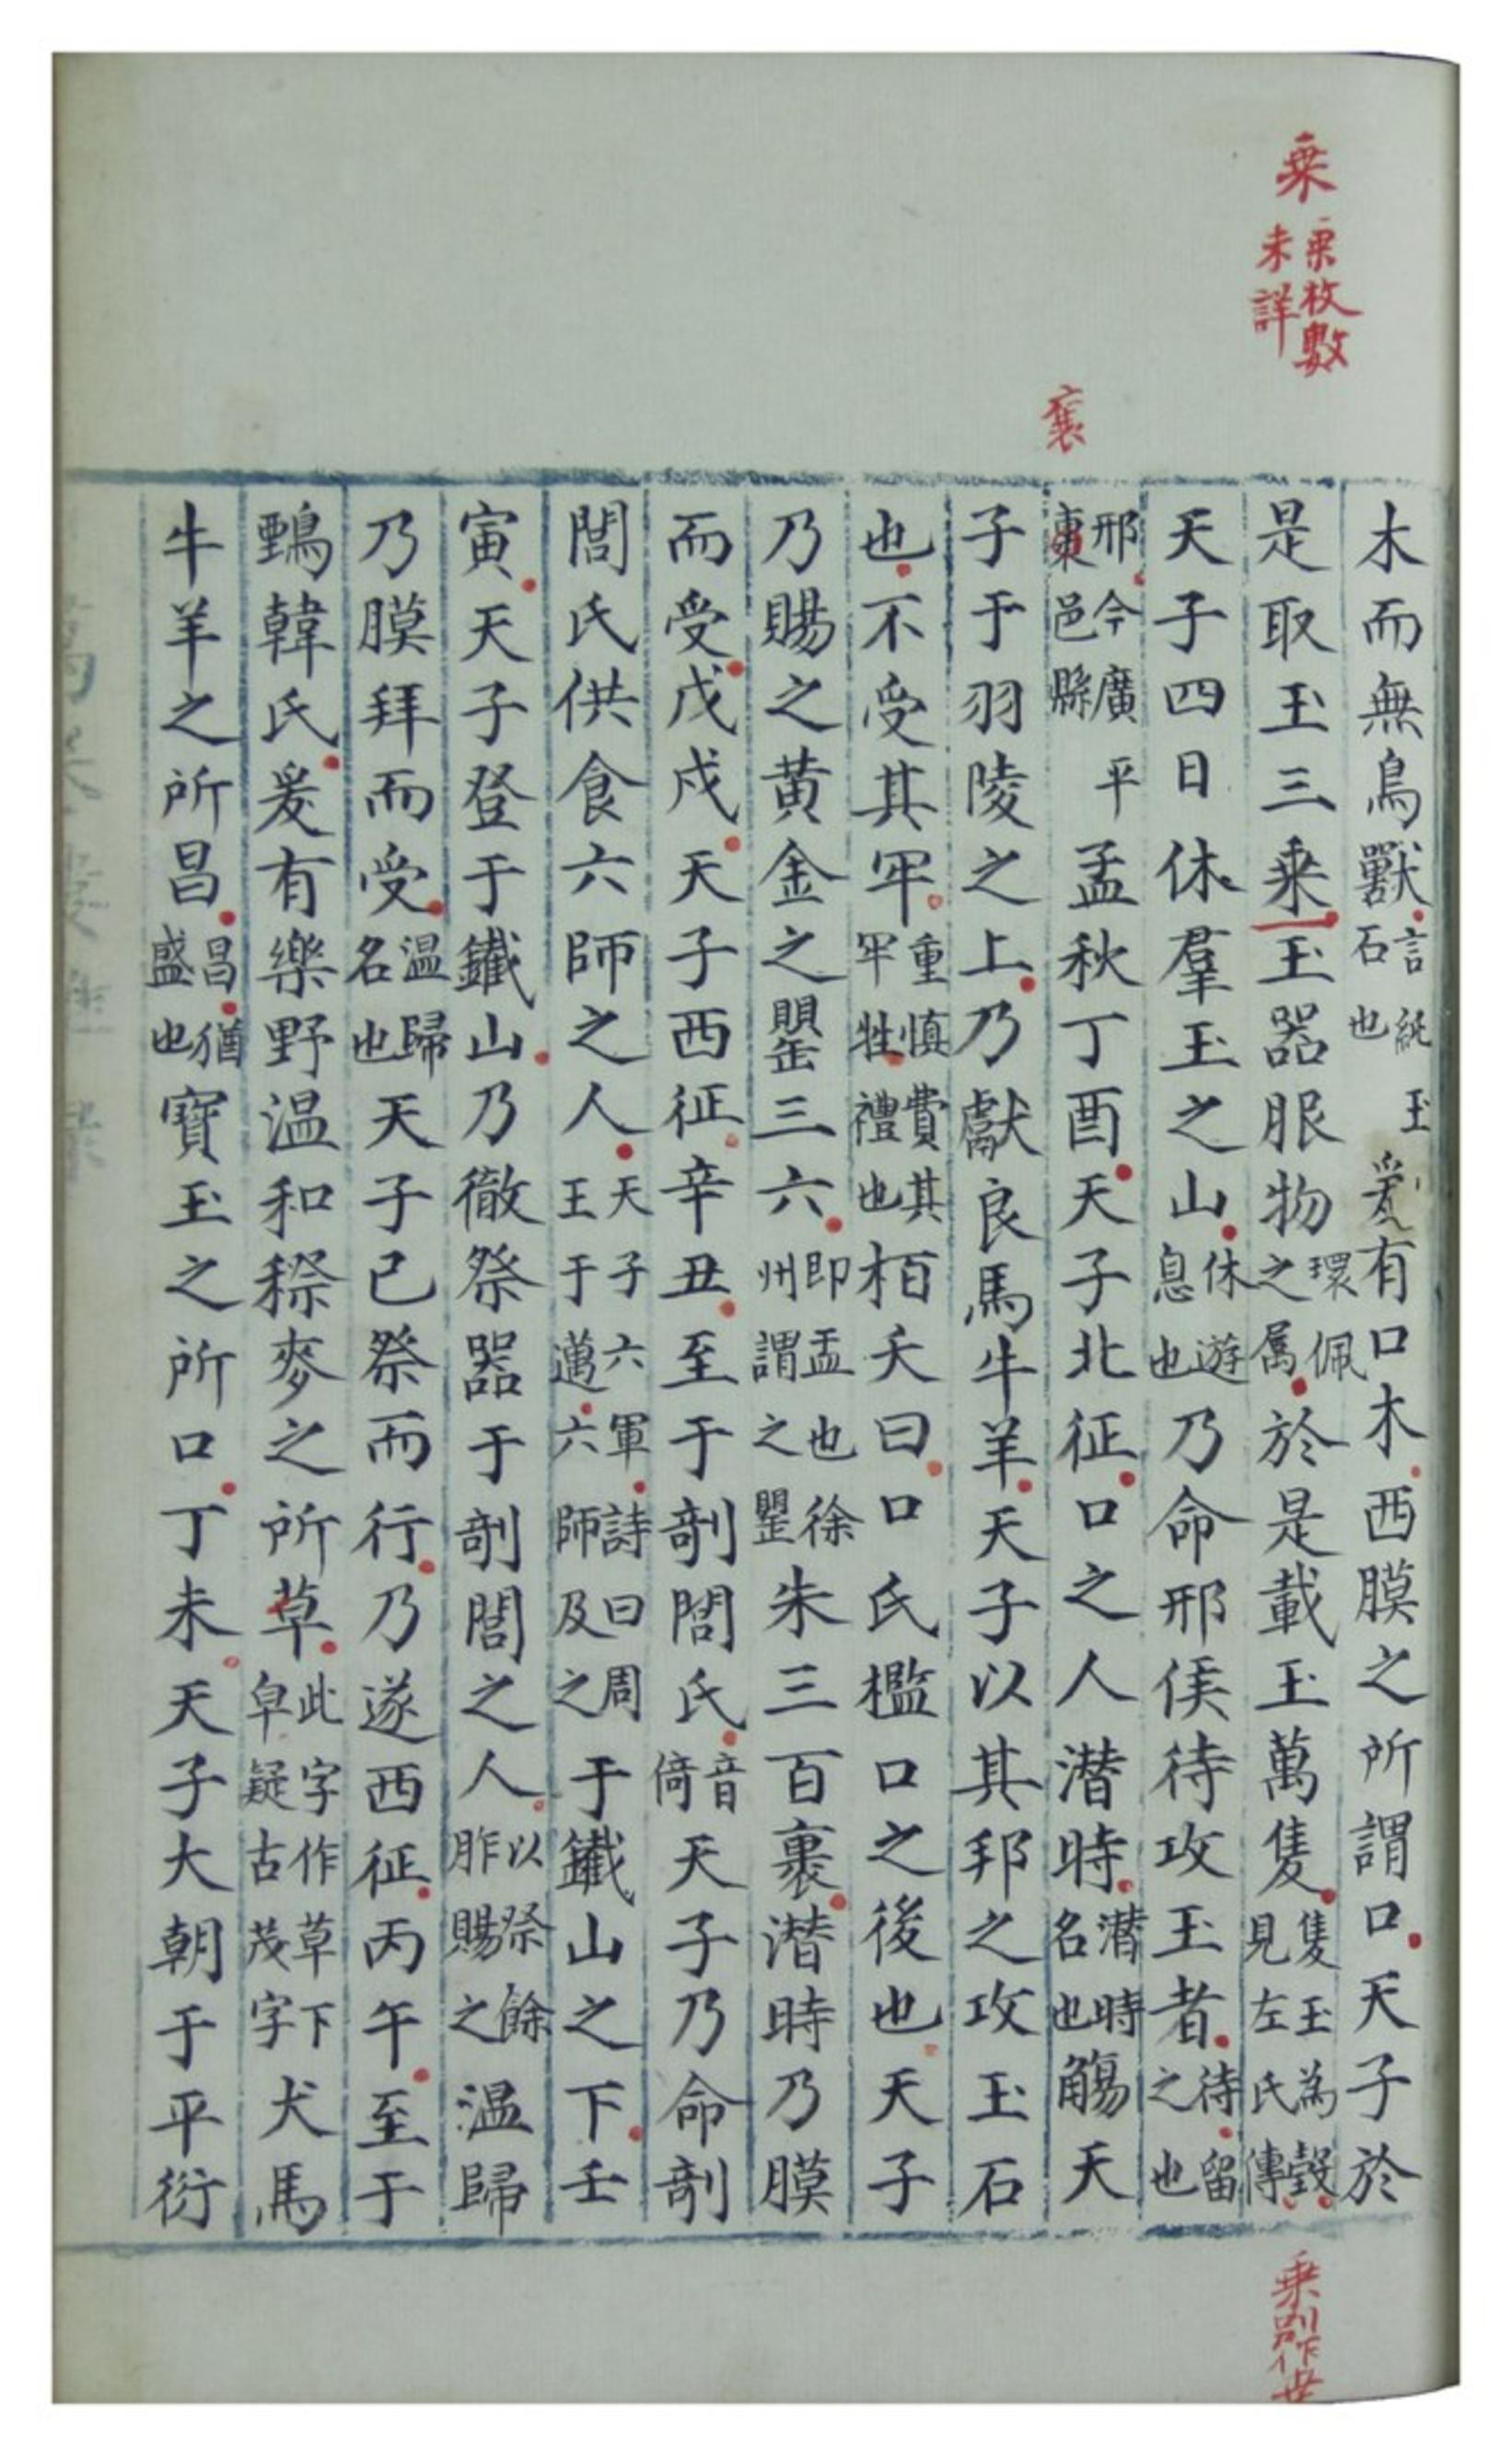 乗
乗枚數
未詳
褱
木而無鳥獸言純玉石也爰有口木西膜之所謂口天子於
是取玉三乗玉器服物環佩之属於是載玉萬隻隻玉為瑴見左氏傳
天子四日休羣玉之山休遊息也乃命邢侯待攻玉者待留之也
邢今廣平褱邑縣孟秋丁酉天子北征口之人潜時潜時名也觴天
子于羽陵之上乃獻良馬牛羊天子以其邦之攻玉石
也不受其牢重慎費其牢牲禮也栢夭曰口氏檻口之後也天子
乃賜之黄金之罌三六即盂也徐州謂之罌朱三百裹潜時乃膜
而受戊戌天子西征辛丑至于剞閭氏音倚天子乃命剞
閭氏供食六師之人天子六軍詩曰周王于邁六師及之于鐵山之下壬
寅天子登于鐵山乃徹祭器于剞閭之人以祭餘胙賜之温歸
乃膜拜而受温歸名也天子已祭而行乃遂西征丙午至于
鸅韓氏爰有樂野温和穄麥之所草此字作草下皁疑古茂字犬馬
牛羊之所昌昌猶盛也寶玉之所口丁未天子大朝于平衍
乗別作